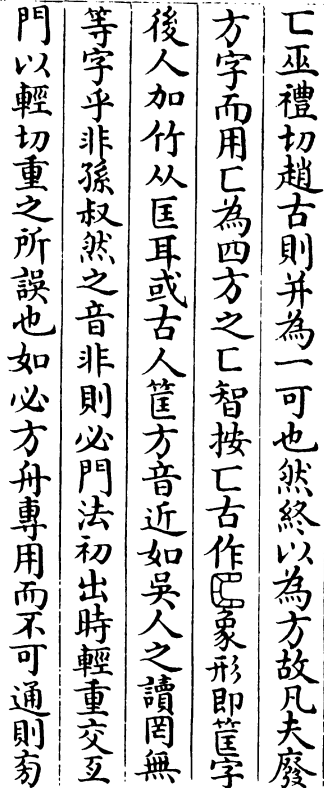 匸巫禮切趙古則并為一可也然終以為方故凡夫廢
方字而用匚為四方之匚智按匚古作象形即筐字
後人加竹从匡耳或古人筐方音近如吳人之讀罔無
等字乎非孫叔然之音非則必門法初出時輕重交互
門以輕切重之所誤也如必方舟專用而不可通則旁